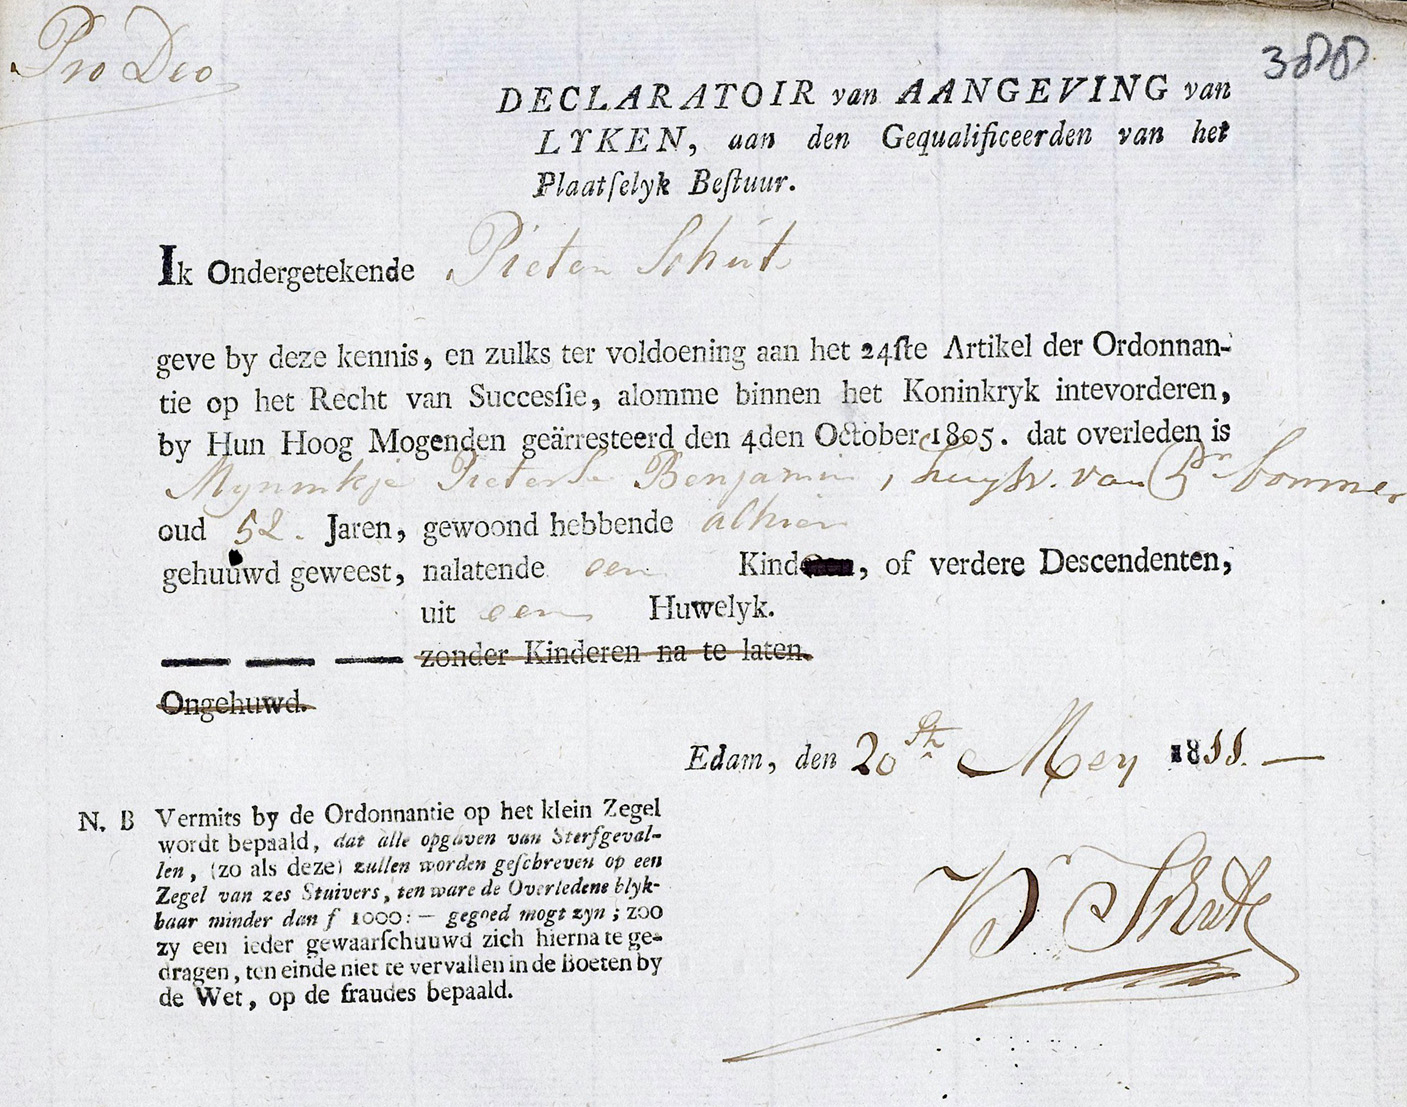 Pro Deo
388
DECLARATOIR van AANGEVING van
LYKEN, aan den Gequalificeerden van het
Plaatſelyk Beſtuur.
Ik Ondergetekende Pieter Schut
geve by deze kennis, en zulks ter voldoening aan het 24ſte Artikel der Ordonnan-
tie op het Recht van Succesſie, alomme binnen het Koninkryk intevorderen,
by Hun Hoog Mogenden geärresteerd den 4den October 1805. dat overleden is
Mynnikje Pieterse Benjamin, huysv. van
oud 52. Jaren, gewoond hebbende alhier
gehuuwd geweest, nalatende een Kinderen, of verdere Descendenten,
uit een Huwelyk.
zonder Kinderen na te laten.
Ongehuwd.
Edam, den 20ste Mey 1811.
N. B Vermits by de Ordonnantie op het klein Zegel
wordt bepaald, dat alle opgaven van Sterfgeval-
len, (zo als deze) zullen worden geſchreven op een
Zegel van zes Stuivers, ten ware de Overledene blyk-
baar minder dan f 1000:— gegoed mogt zyn; zoo
zy een ieder gewaarſchuuwd zich hierna te ge-
dragen, ten einde niet te vervallen in de Boeten by
de Wet, op de fraudes bepaald.
Pr Schut